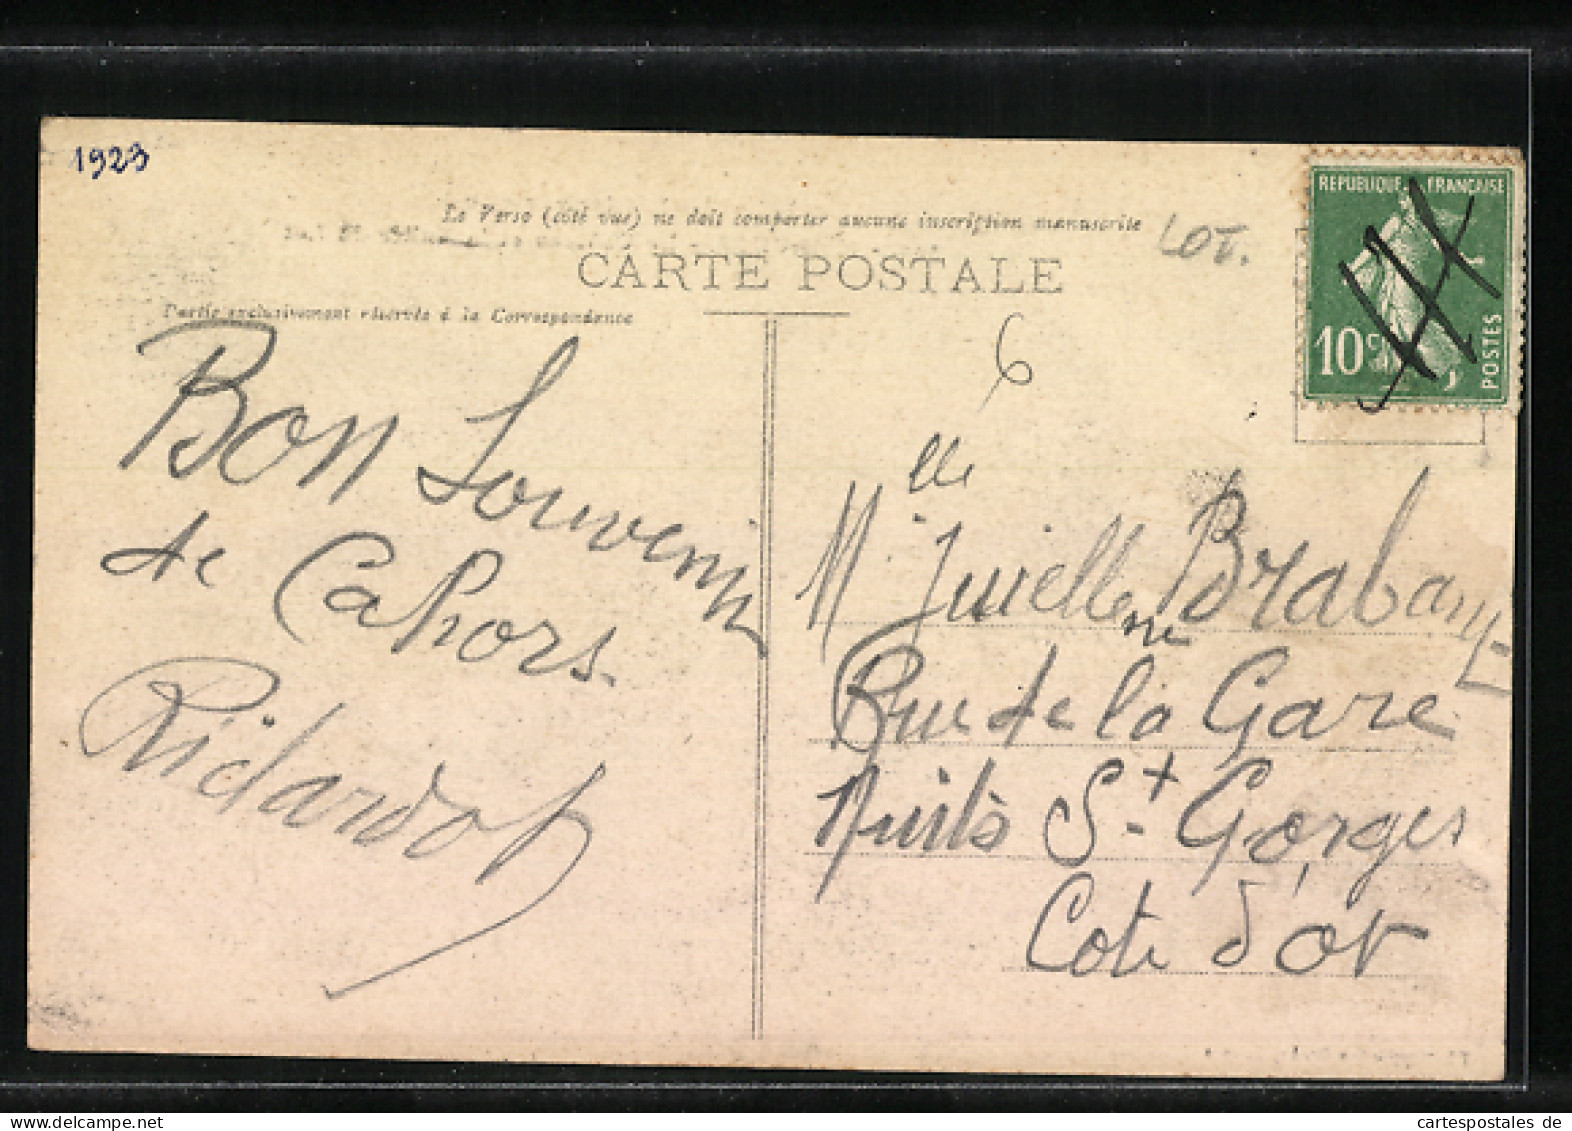 1923
Le Verso (côté vue) ne doit comporter aucune inscription manuscrite
LOT.
CARTE POSTALE
Partie exclusivement réservée à la Correspondance
REPUBLIQUE FRANÇAISE
10c
POSTES
6
Bon Souvenir
de Cahors
Ridardot
Melle Brabant
Rue de la Gare
Nuits St. Georges
Cote d'or
cartespostales.de